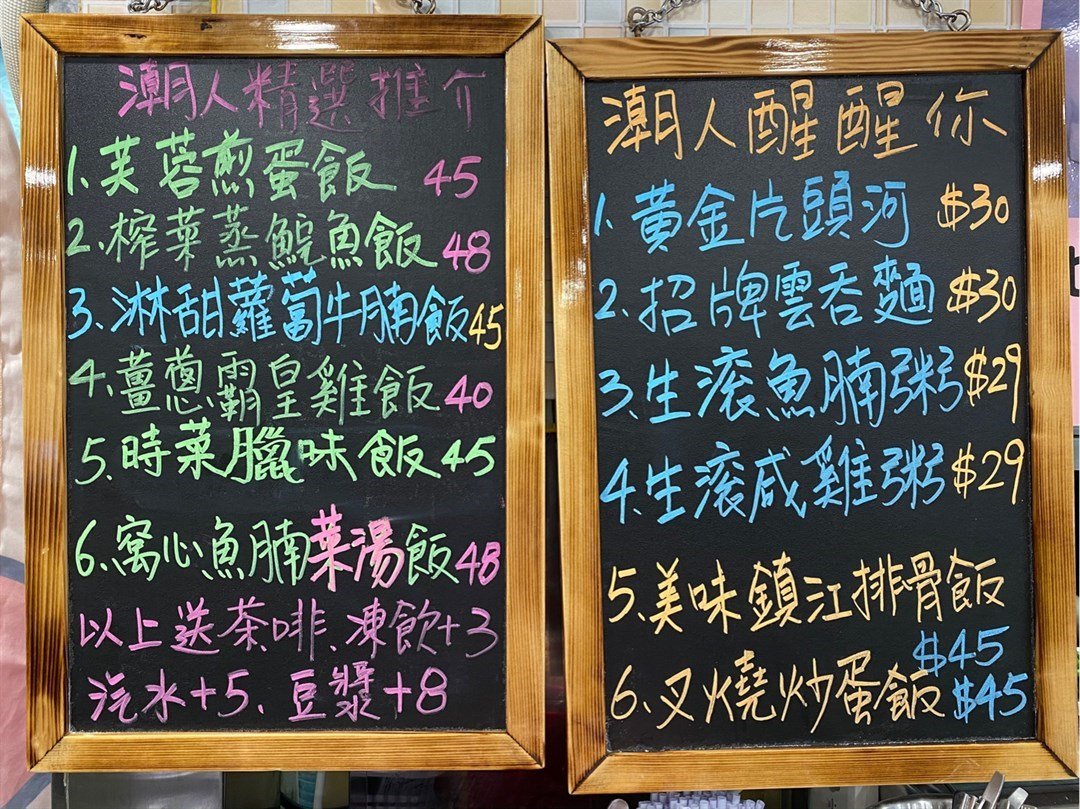 潮人精選推介
1.芙蓉煎蛋飯 45
2.榨菜蒸鯇魚飯 48
3.淋甜蘿蔔牛腩飯 45
4.薑蔥霸皇雞飯 40
5.時菜臘味飯 45
6.窩心魚腩菜湯飯 48
以上送茶啡、凍飲+3
汽水+5、豆漿+8
潮人醒醒你
1.黃金片頭河 $30
2.招牌雲吞麵 $30
3.生滾魚腩粥 $29
4.生滾咸雞粥 $29
5.美味鎮江排骨飯
$45
6.叉燒炒蛋飯 $45